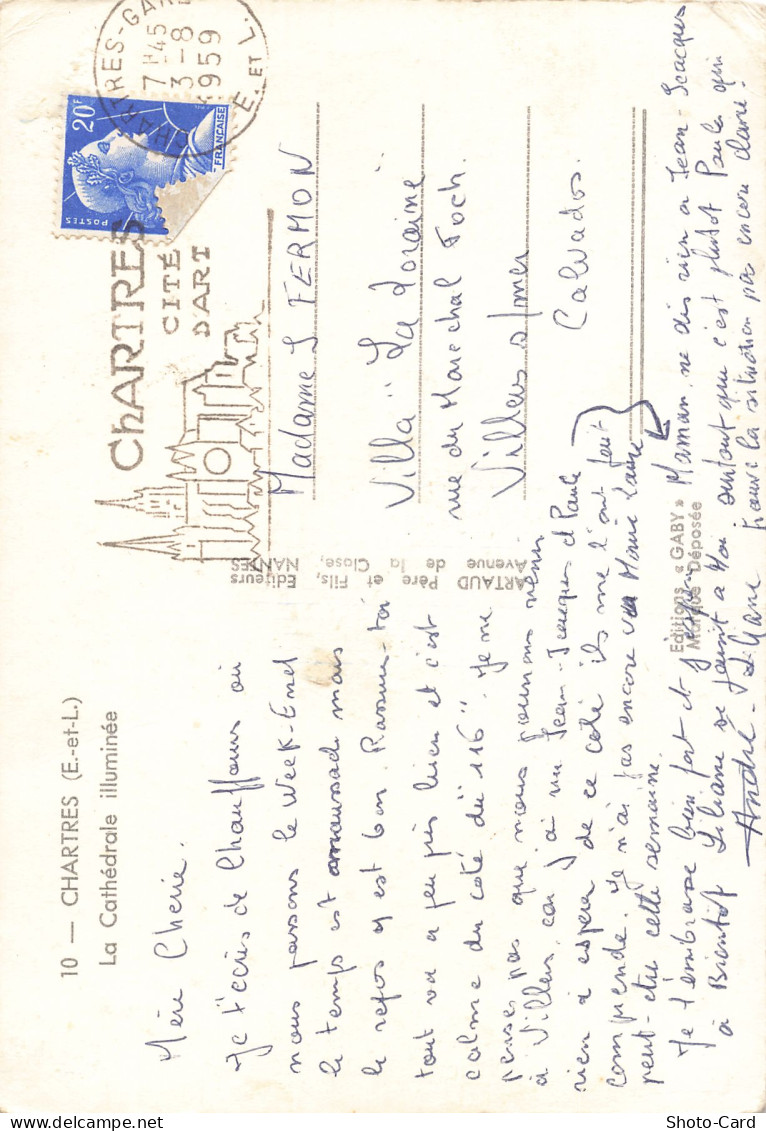 10 — CHARTRES (E.-et-L.)
La Cathédrale illuminée
Mère Cherie.
Je t'écris de Chauffours où
nous passons le Week-End
le temps est maussade mais
le repos y est bon. Rassure-toi
tout va a peu près bien et c'est
calme du coté du "116". Je ne
penses pas que nous pourrons venir
à Villers, car j'ai vu Jean-Jacques et Paule
rien à espérer de ce coté ils me l'ont fait
comprendre. Je n'ai pas encore vu Marie Laure
peut-etre cette semaine.
Je t'embrasse bien fort et Maman, ne dis rien a Jean-Jacques
à Bientôt Liliane se joint a Moi surtout que c'est plutot Paule qui
André - Liliane trouve la situation pas encore claire.
ARTAUD Père et Fils, Editeurs
Avenue de la Close, NANTES
Editions « GABY »
Marque Déposée
CHARTRES-GARE
7H45
3-8
1959
E. ET L.
20F
POSTES
FRANÇAISE
CHARTRES
CITÉ
D'ART
Madame S FERMON
Villa "La Loraine"
rue du Marechal Foch.
Villers s/mer
Calvados.
Shoto-Card